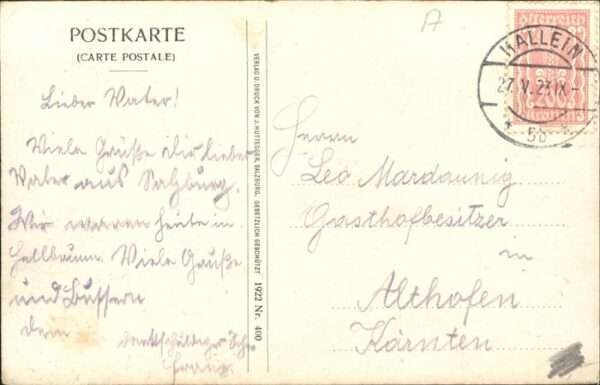 POSTKARTE
(CARTE POSTALE)
Lieber Vater!
Viele Grüße Dir lieber
Vater aus Salzburg.
Wir waren heute in
Hellbrunn. Viele Grüße
und Bussern
dem dankschuldiger Sohn
Franz.
VERLAG U. DRUCK VON J. HUTTEGGER, SALZBURG. GESETZLICH GESCHÜTZT 1922 Nr. 400
A
österreich
200
Kronen
HALLEIN
27. V. 23 IX-
* 5b *
Herrn
Leo Mardaunig
Gasthofbesitzer
in
Althofen
Kärnten